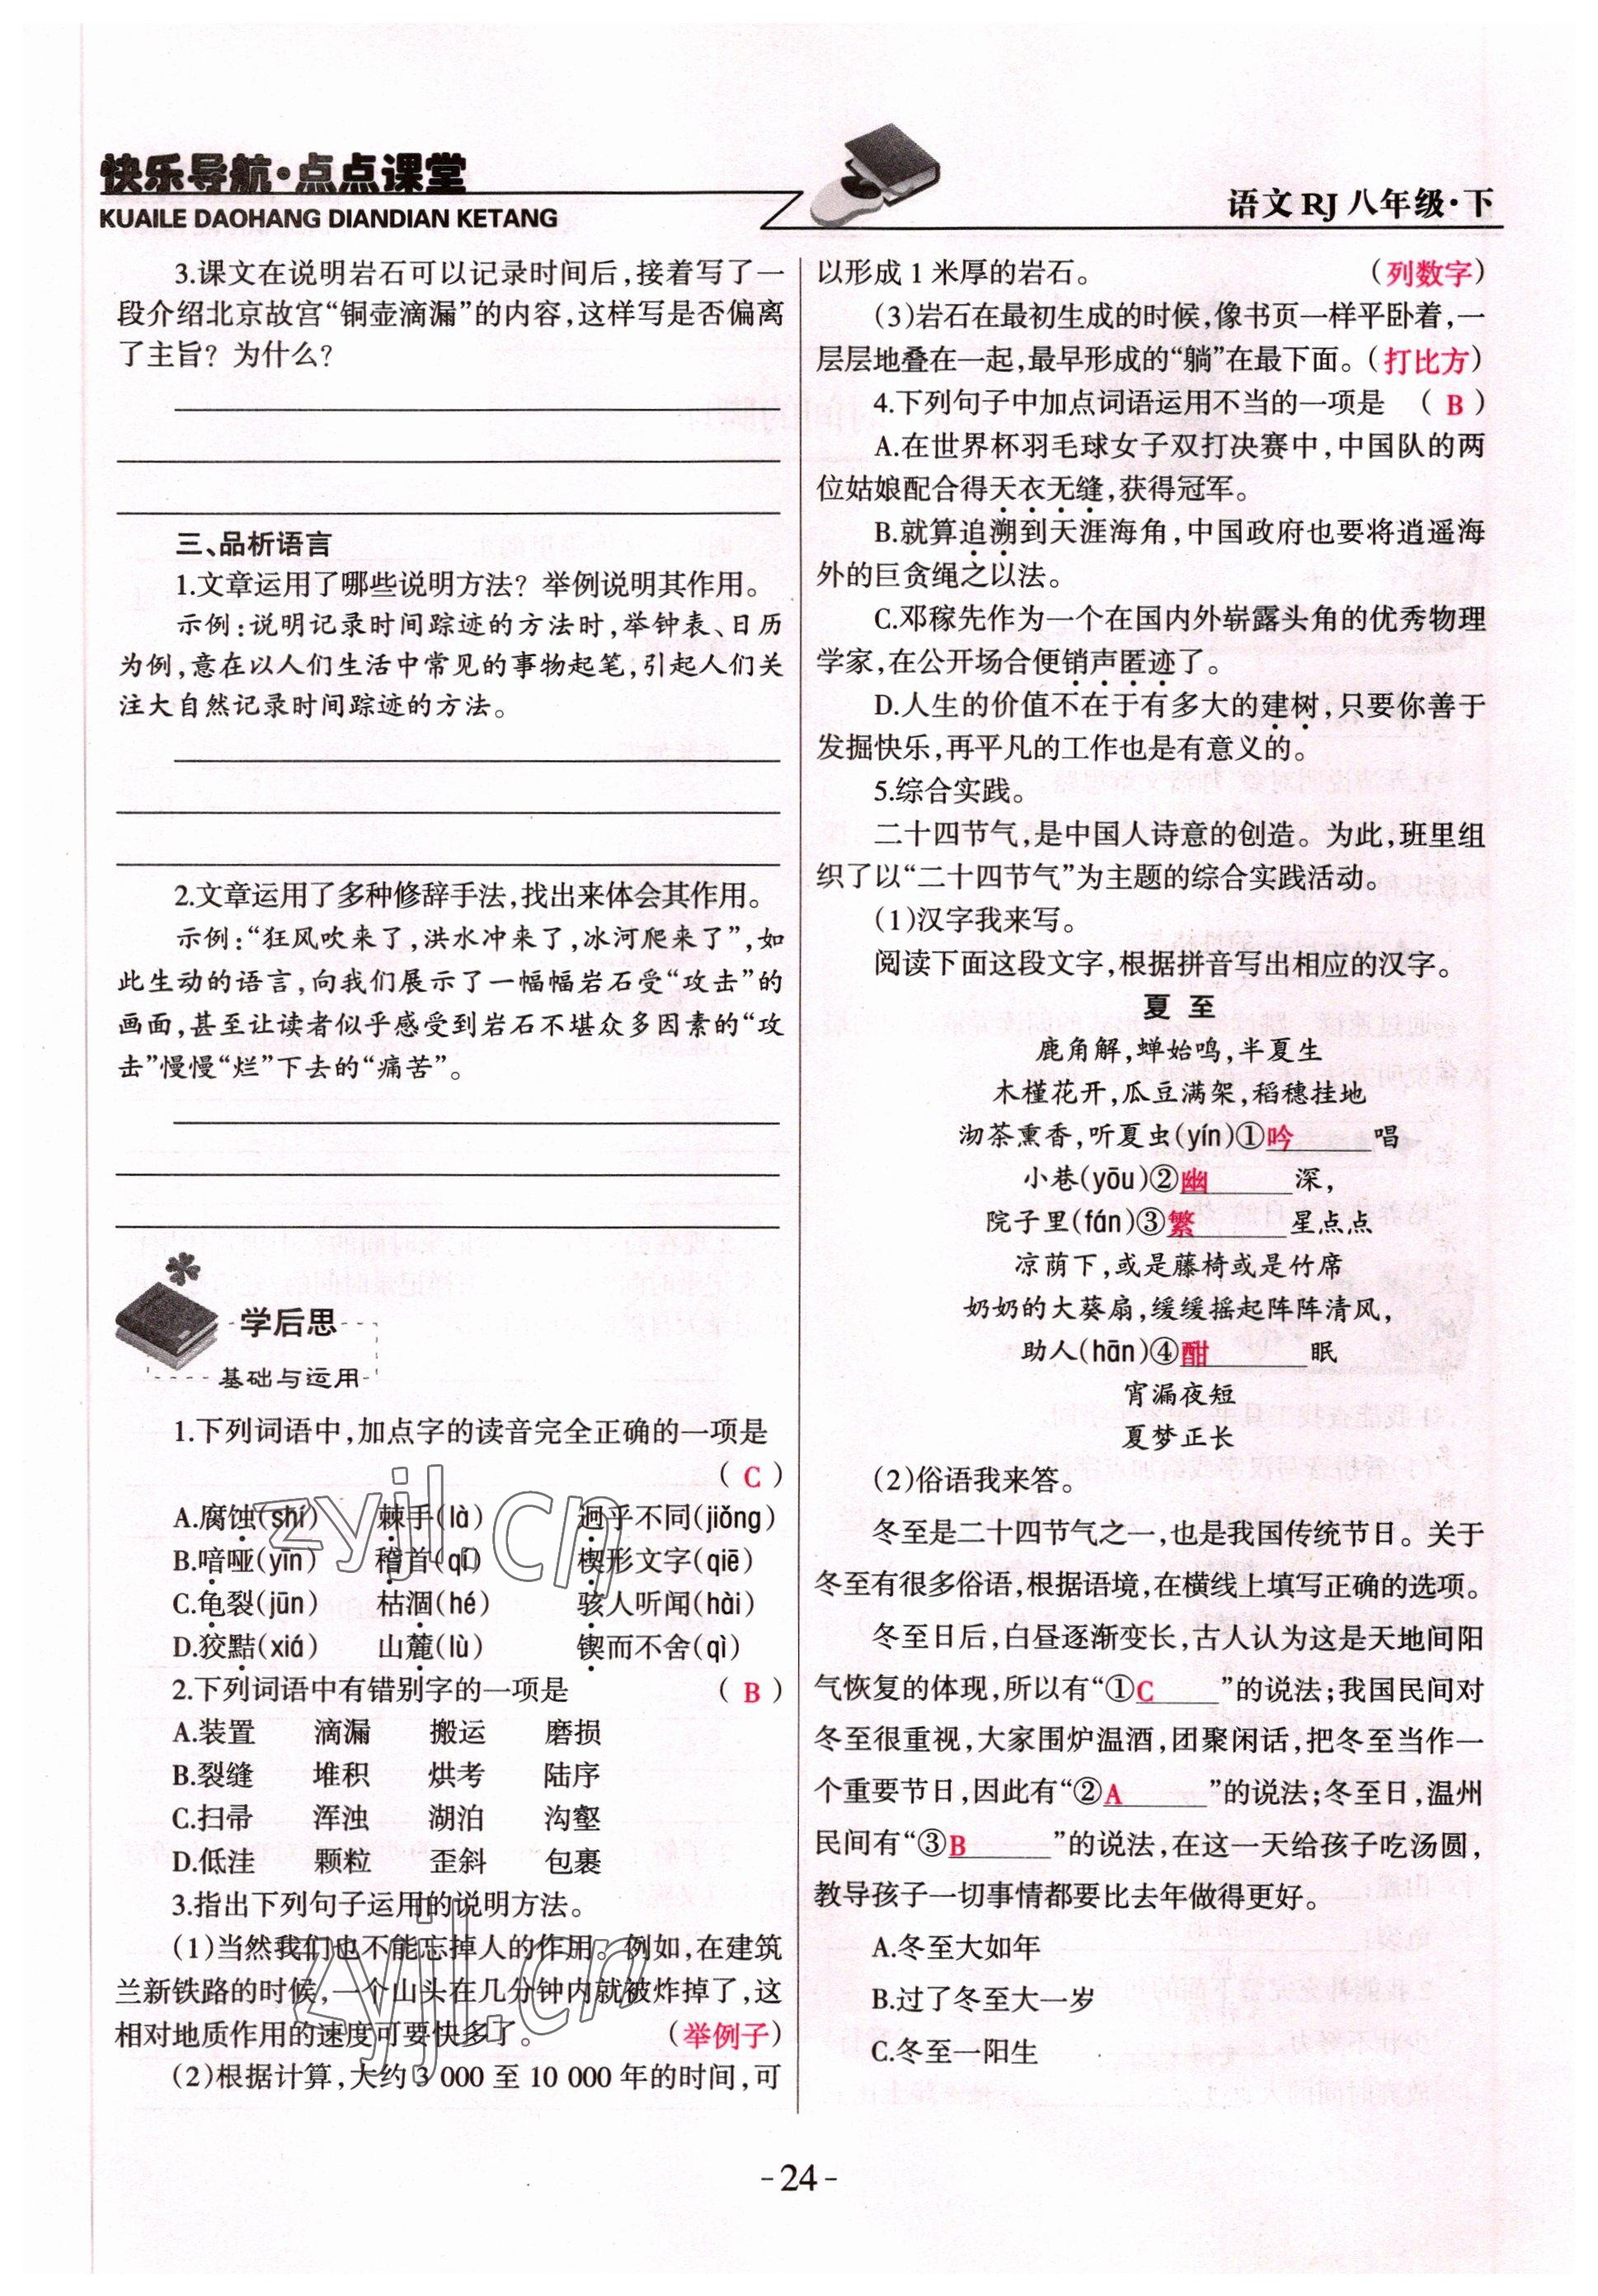 快乐导航·点点课堂
KUAILE DAOHANG DIANDIAN KETANG
语文 RJ 八年级·下
3.课文在说明岩石可以记录时间后,接着写了一
段介绍北京故宫“铜壶滴漏”的内容,这样写是否偏离
了主旨？为什么？
三、品析语言
1.文章运用了哪些说明方法？举例说明其作用。
示例:说明记录时间踪迹的方法时,举钟表、日历
为例,意在以人们生活中常见的事物起笔,引起人们关
注大自然记录时间踪迹的方法。
2.文章运用了多种修辞手法,找出来体会其作用。
示例:“狂风吹来了,洪水冲来了,冰河爬来了”,如
此生动的语言,向我们展示了一幅幅岩石受“攻击”的
画面,甚至让读者似乎感受到岩石不堪众多因素的“攻
击”慢慢“烂”下去的“痛苦”。
学后思
基础与运用
1.下列词语中,加点字的读音完全正确的一项是
( C )
A.腐蚀(shí) 棘手(là) 迥乎不同(jiǒng)
B.喑哑(yīn) 稽首(qǐ) 楔形文字(qiē)
C.龟裂(jūn) 枯涸(hé) 骇人听闻(hài)
D.狡黠(xiá) 山麓(lù) 锲而不舍(qì)
2.下列词语中有错别字的一项是 ( B )
A.装置 滴漏 搬运 磨损
B.裂缝 堆积 烘考 陆序
C.扫帚 浑浊 湖泊 沟壑
D.低洼 颗粒 歪斜 包裹
3.指出下列句子运用的说明方法。
(1)当然我们也不能忘掉人的作用。例如,在建筑
兰新铁路的时候,一个山头在几分钟内就被炸掉了,这
相对地质作用的速度可要快多了。 (举例子)
(2)根据计算,大约 3 000 至 10 000 年的时间,可
以形成 1 米厚的岩石。 (列数字)
(3)岩石在最初生成的时候,像书页一样平卧着,一
层层地叠在一起,最早形成的“躺”在最下面。(打比方)
4.下列句子中加点词语运用不当的一项是 ( B )
A.在世界杯羽毛球女子双打决赛中,中国队的两
位姑娘配合得天衣无缝,获得冠军。
B.就算追溯到天涯海角,中国政府也要将逍遥海
外的巨贪绳之以法。
C.邓稼先作为一个在国内外崭露头角的优秀物理
学家,在公开场合便销声匿迹了。
D.人生的价值不在于有多大的建树,只要你善于
发掘快乐,再平凡的工作也是有意义的。
5.综合实践。
二十四节气,是中国人诗意的创造。为此,班里组
织了以“二十四节气”为主题的综合实践活动。
(1)汉字我来写。
阅读下面这段文字,根据拼音写出相应的汉字。
夏 至
鹿角解,蝉始鸣,半夏生
木槿花开,瓜豆满架,稻穗挂地
沏茶熏香,听夏虫(yín)①吟唱
小巷(yōu)②幽深,
院子里(fán)③繁星点点
凉荫下,或是藤椅或是竹席
奶奶的大葵扇,缓缓摇起阵阵清风,
助人(hān)④酣眠
宵漏夜短
夏梦正长
(2)俗语我来答。
冬至是二十四节气之一,也是我国传统节日。关于
冬至有很多俗语,根据语境,在横线上填写正确的选项。
冬至日后,白昼逐渐变长,古人认为这是天地间阳
气恢复的体现,所以有“①C”的说法;我国民间对
冬至很重视,大家围炉温酒,团聚闲话,把冬至当作一
个重要节日,因此有“②A”的说法;冬至日,温州
民间有“③B”的说法,在这一天给孩子吃汤圆,
教导孩子一切事情都要比去年做得更好。
A.冬至大如年
B.过了冬至大一岁
C.冬至一阳生
zyjl.cn
zyjl.cn
-24-